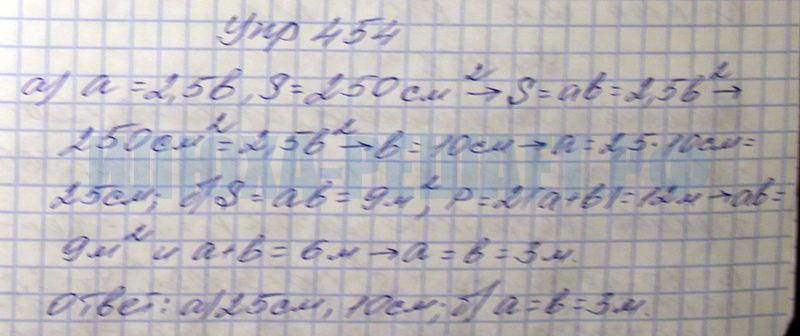 Упр 454
а) a = 2,5b, S = 250 см² → S = ab = 2,5b² →
250 см² = 2,5b² → b = 10 см → a = 2,5·10 см =
25 см; б) S = ab = 9 м², P = 2(a+b) = 12 м → ab =
9 м² и a+b = 6 м → a = b = 3 м.
Ответ: а) 25 см, 10 см; б) a = b = 3 м.